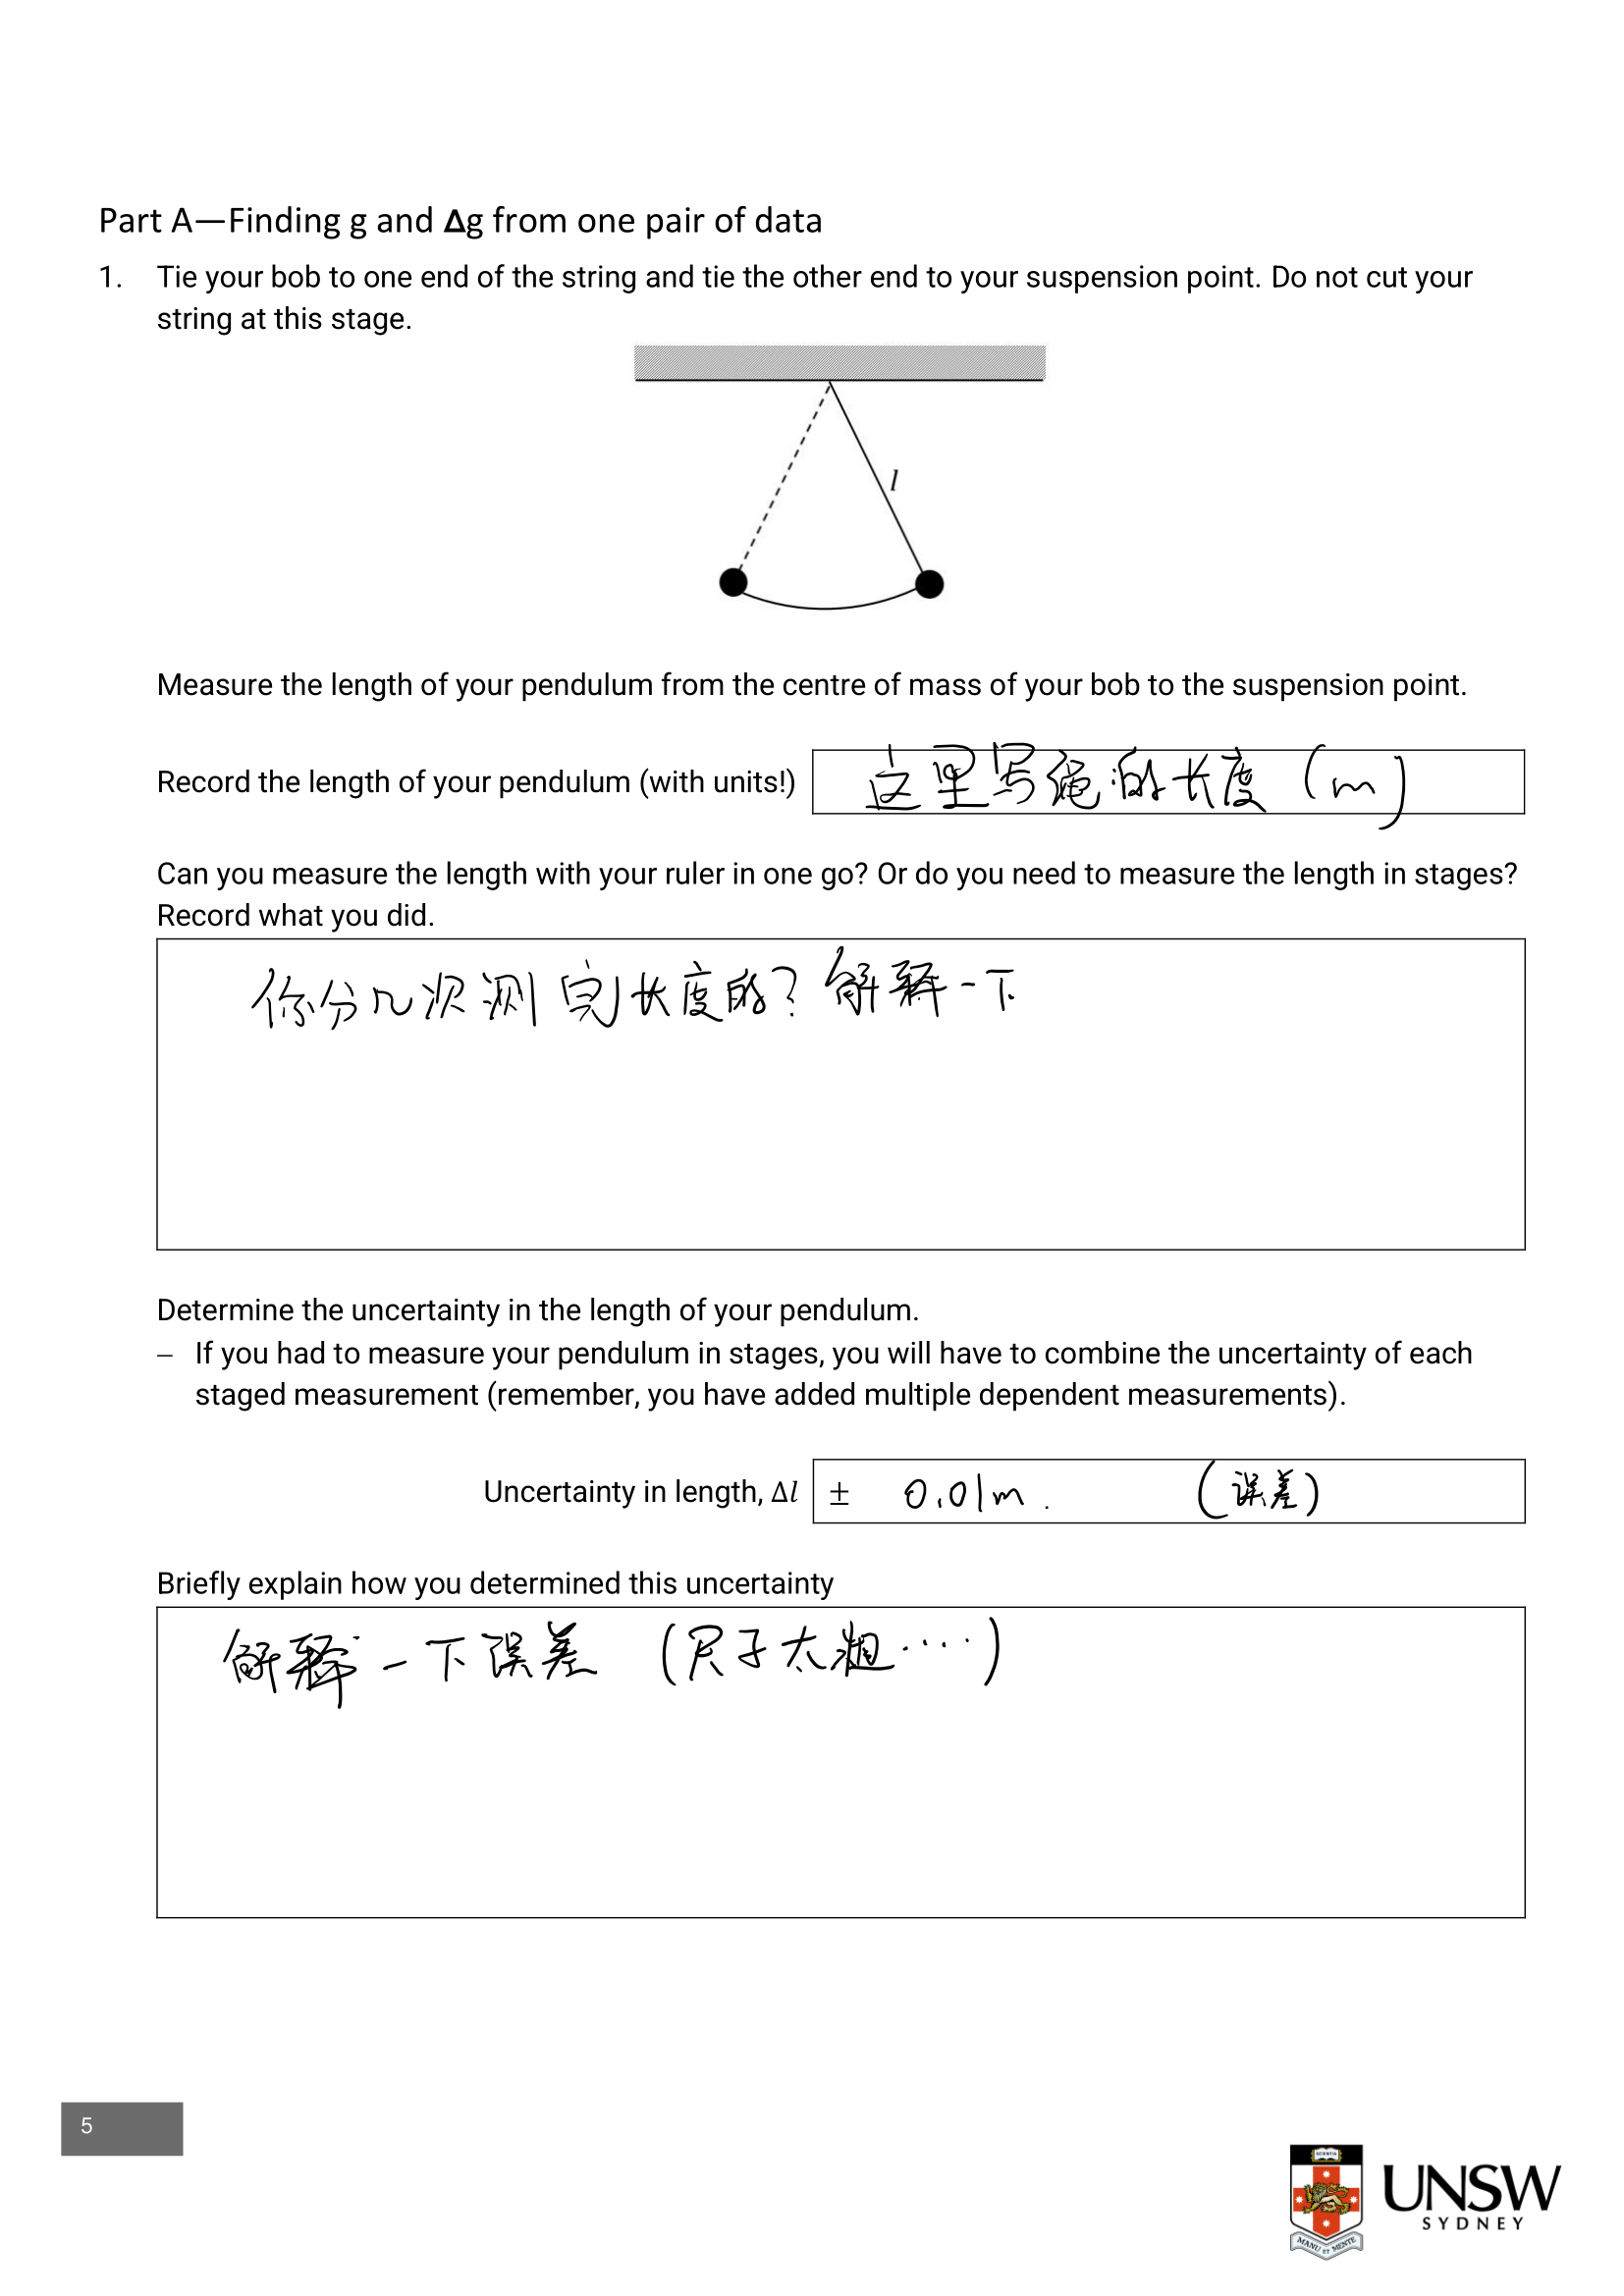 Part A—Finding g and Δg from one pair of data
1. Tie your bob to one end of the string and tie the other end to your suspension point. Do not cut your
string at this stage.
l
Measure the length of your pendulum from the centre of mass of your bob to the suspension point.
Record the length of your pendulum (with units!) 这里写绳的长度 (m)
Can you measure the length with your ruler in one go? Or do you need to measure the length in stages?
Record what you did.
你分几次测完长度的?解释一下
Determine the uncertainty in the length of your pendulum.
– If you had to measure your pendulum in stages, you will have to combine the uncertainty of each
staged measurement (remember, you have added multiple dependent measurements).
Uncertainty in length, Δl ± 0.01m. (误差)
Briefly explain how you determined this uncertainty
解释一下误差 (尺子太粗····)
5
SCIENTIA
MANU ET MENTE
UNSW
SYDNEY